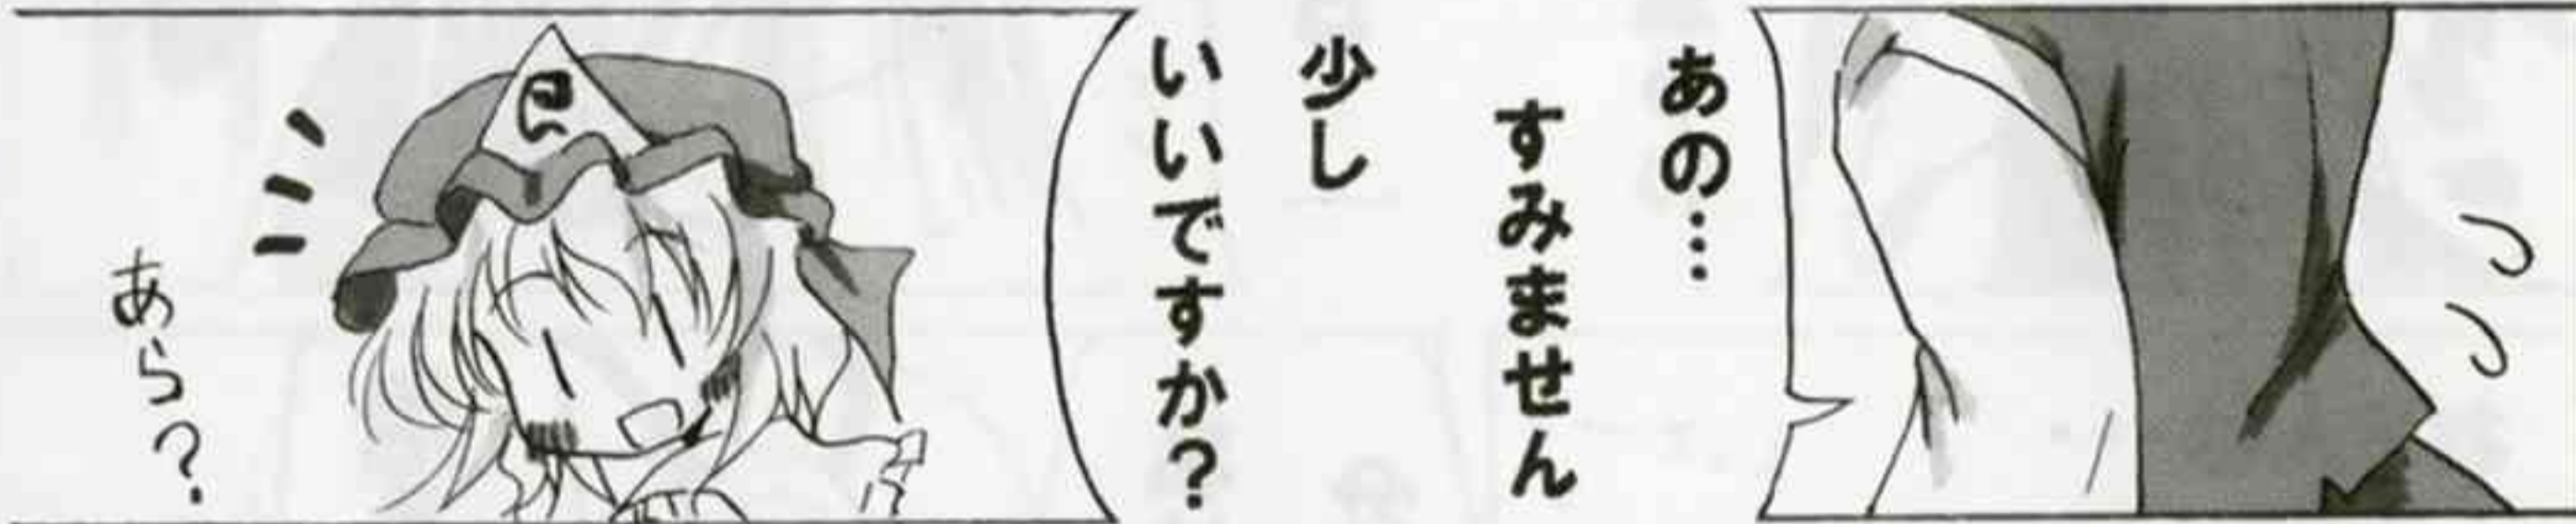 あの…
すみません
少し
いいですか？
あら？